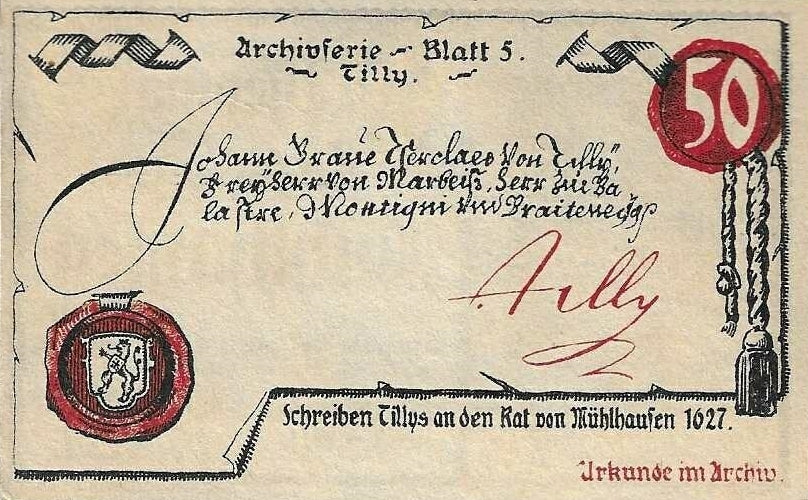 Archivserie - Blatt 5.
Tilly.
50
Johann Graue Tserclaes von Tilly,
Freyherr von Marbeiß, Herr zue Ba
lastre, Montigni vnd Braitenegg
Tilly
Schreiben Tillys an den Rat von Mühlhausen 1627.
Urkunde im Archiv.